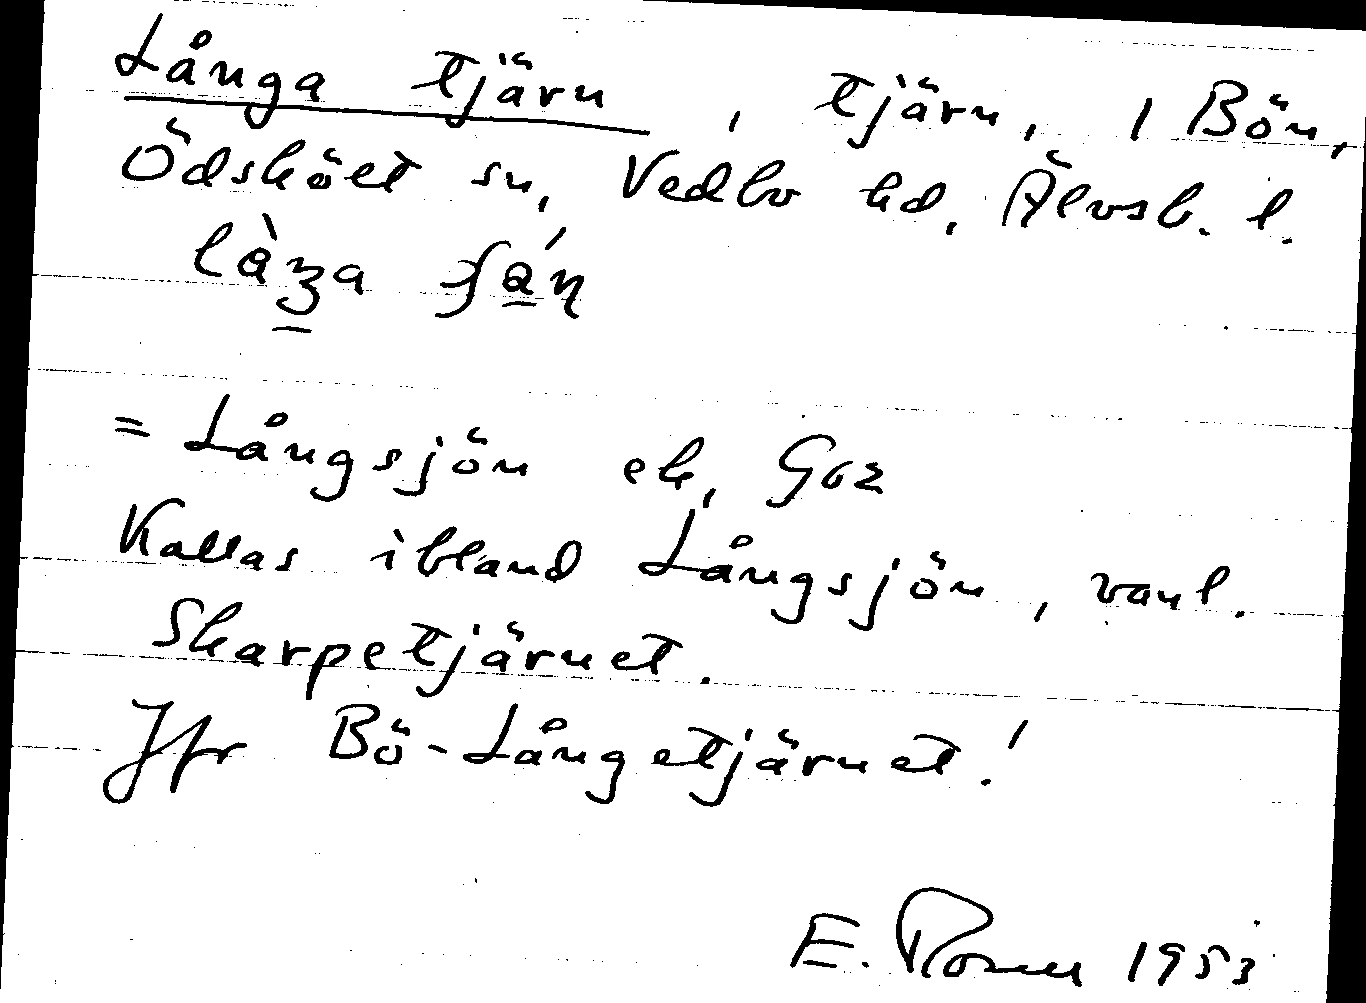 Långa tjärn, tjärn, 1 Bön,
Ödsköet sn, Vedbo hd, Älvsb. l.
= Långsjön ek, Goz
Kallas ibland Långsjön, vanl.
Skarpetjärnet.
Jfr Bö-Långetjärnet!
E. 1953